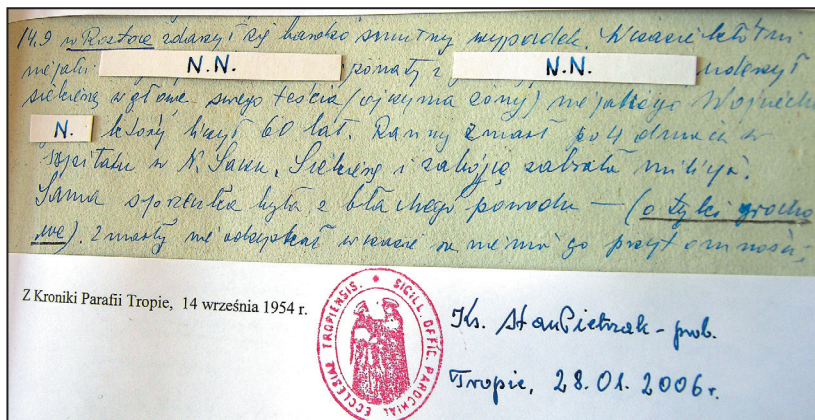 14.9 w Roztoce zdarzył się bardzo smutny wypadek. W czasie kłótni
niejaki N.N. żonaty z N.N. uderzył
siekierą w głowę swego teścia (ojczyma żony) niejakiego Wojciecha
N. który liczył 60 lat. Ranny zmarł po 4 dniach w
szpitalu w N. Sączu. Siekierę i zabójcę zabrała milicja.
Sama sprzeczka była z błahego powodu – (o tyki grocho
we). Zmarły nie odzyskał w czasie przytomności.
Z Kroniki Parafii Tropie, 14 września 1954 r.
SIGILL. OFFIC. PAROCHIAL. ECCLESIAE TROPIENSIS.
Ks. Stan Pietrzak - prob.
Tropie, 28.01.2006 r.